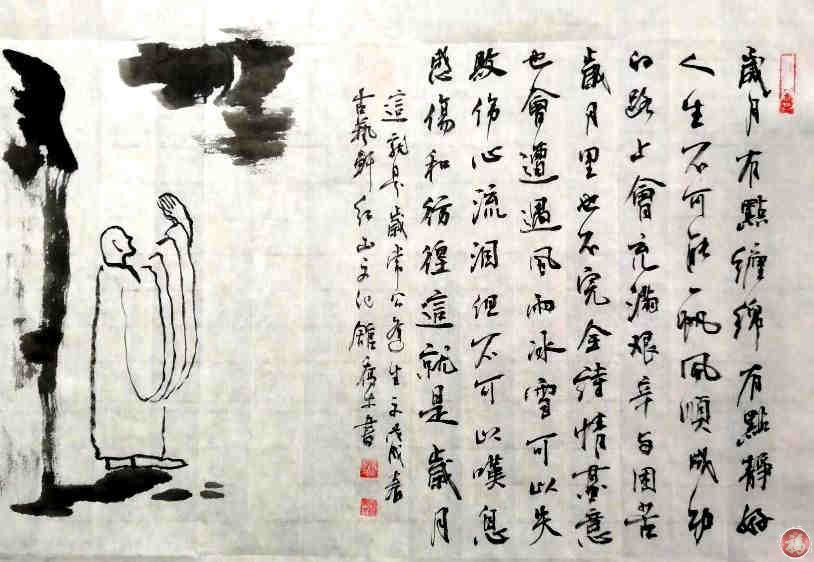 歲月有點纏綿有點靜好
人生不可能一帆風順成功
的路上會充滿艰辛与困苦
歲月里也不完全詩情畫意
也會遭遇风雨冰雪可以失
敗伤心流泪但不可以嘆息
感傷和彷徨這就是歲月
這就是歲常公遵生文戊戌春
古藝軒紅山文化館
書
福